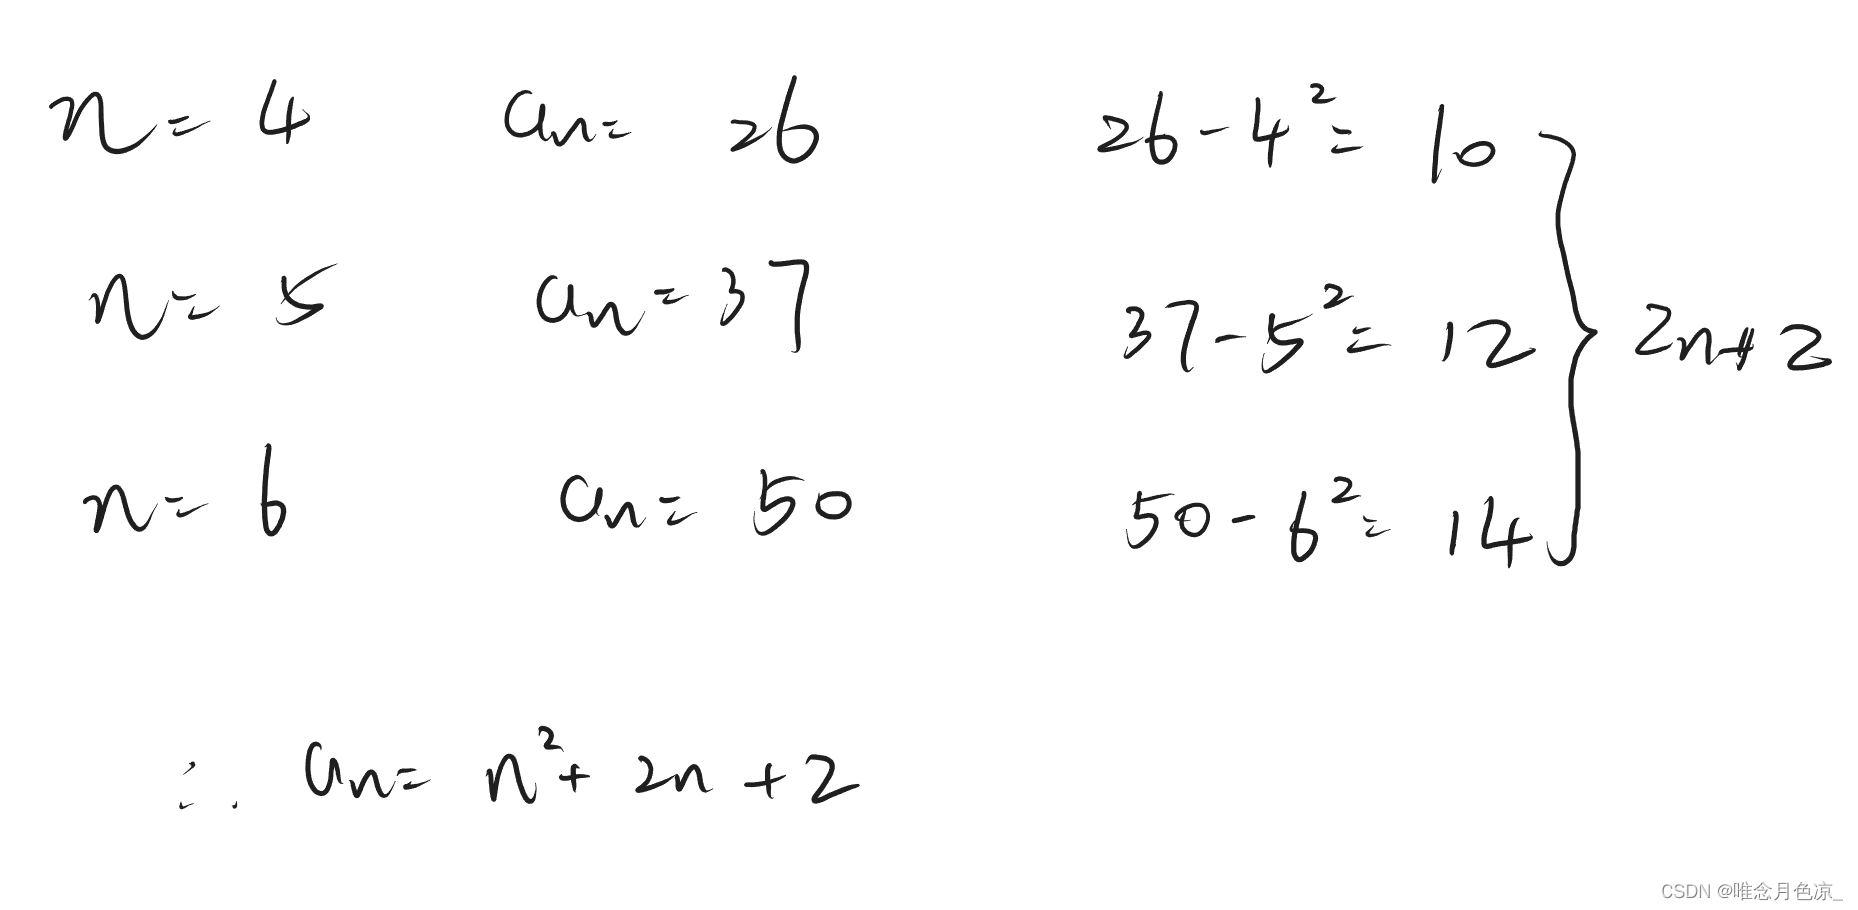 n = 4 aₙ = 26 26 - 4² = 10
n = 5 aₙ = 37 37 - 5² = 12 } 2n + 2
n = 6 aₙ = 50 50 - 6² = 14
∴ aₙ = n² + 2n + 2
CSDN @唯念月色凉_